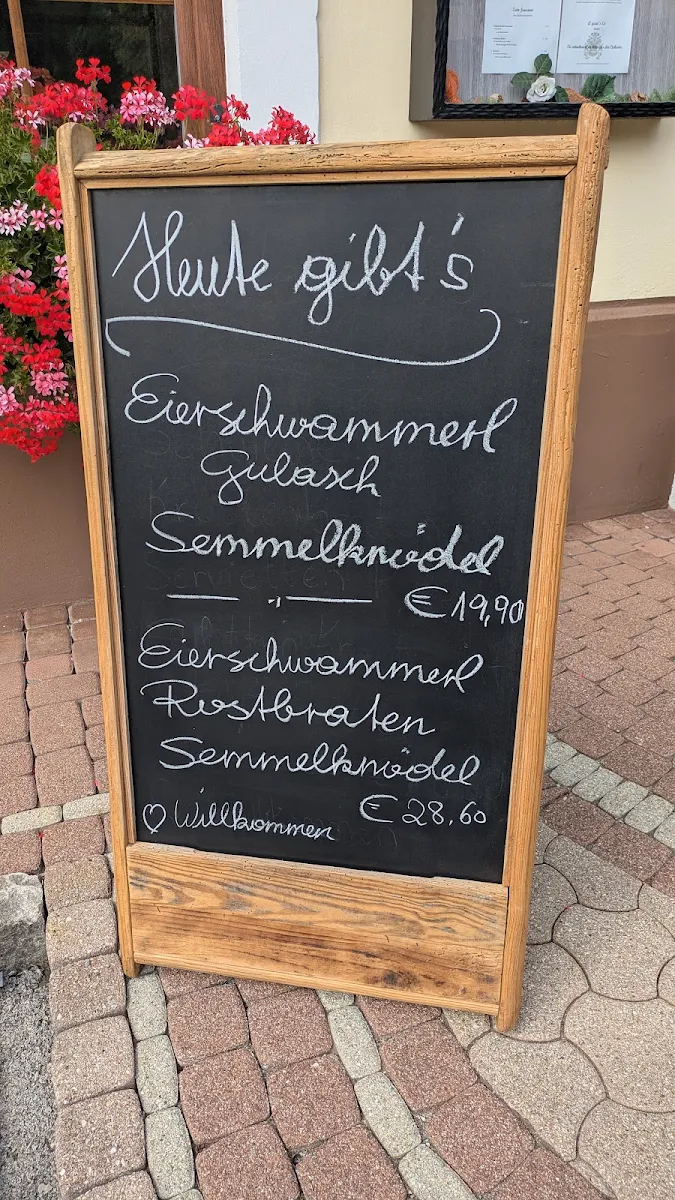 Heute gibt's
Eierschwammerl
Gulasch
Semmelknödel
€ 19,90
Eierschwammerl
Rostbraten
Semmelknödel
€ 28,60
♡ Willkommen